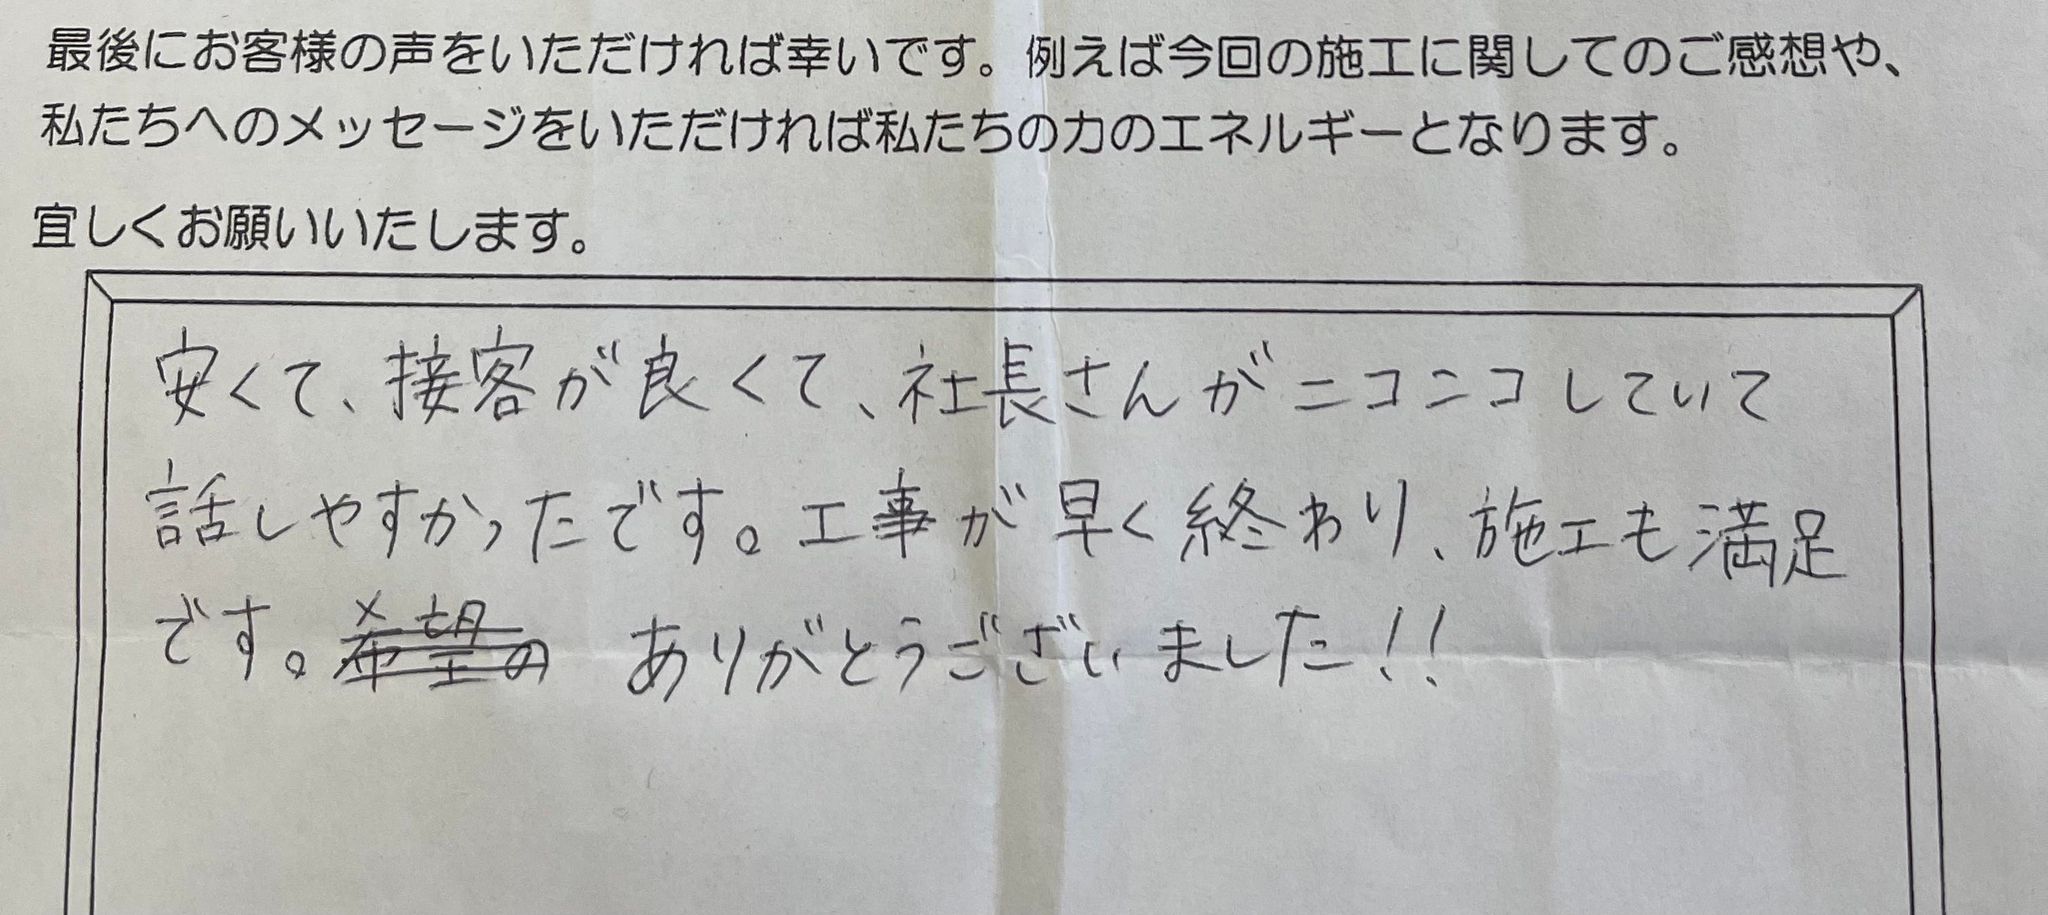 最後にお客様の声をいただければ幸いです。例えば今回の施工に関してのご感想や、
私たちへのメッセージをいただければ私たちの力のエネルギーとなります。
宜しくお願いいたします。
安くて、接客が良くて、社長さんがニコニコしていて
話しやすかったです。工事が早く終わり、施工も満足
です。希望の ありがとうございました!!